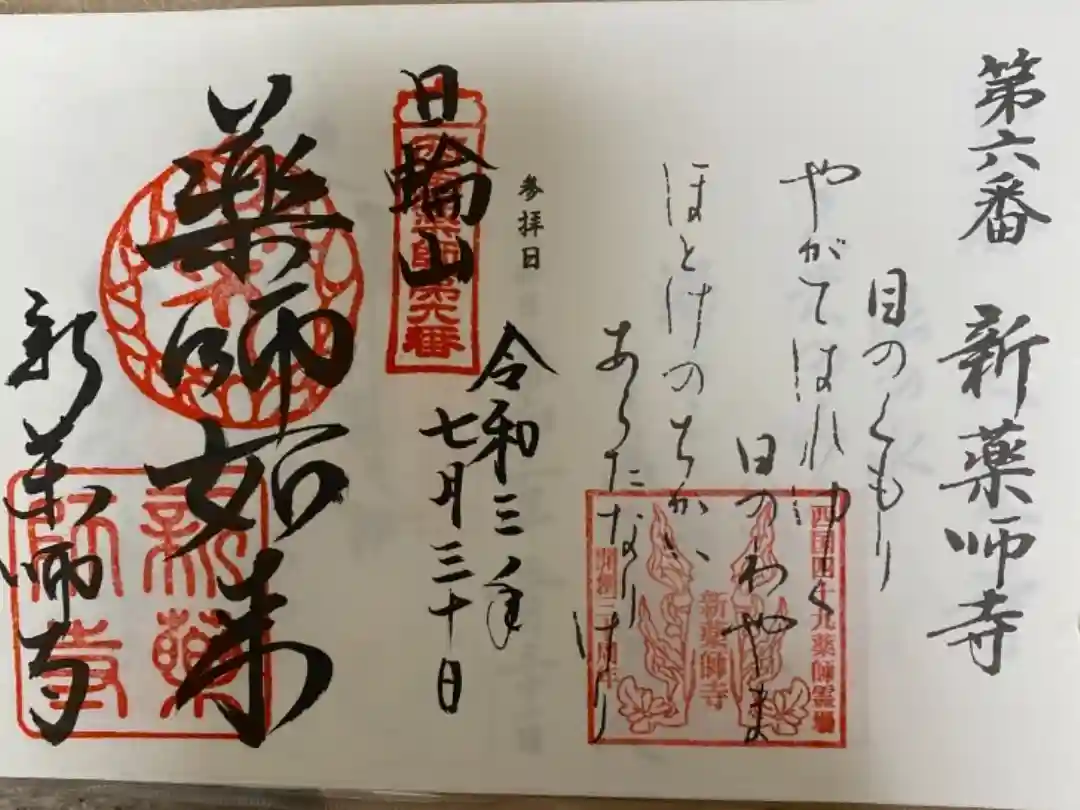 第六番 新薬師寺
目のくもり
やがてはれゆく
日のわやま
ほとけのちかい
あらたなりけり
西国四十九薬師霊場
新薬師寺
開創三十周年
参拝日
令和三年
七月三十日
日輪山
薬師如来
新薬師寺
新薬師寺